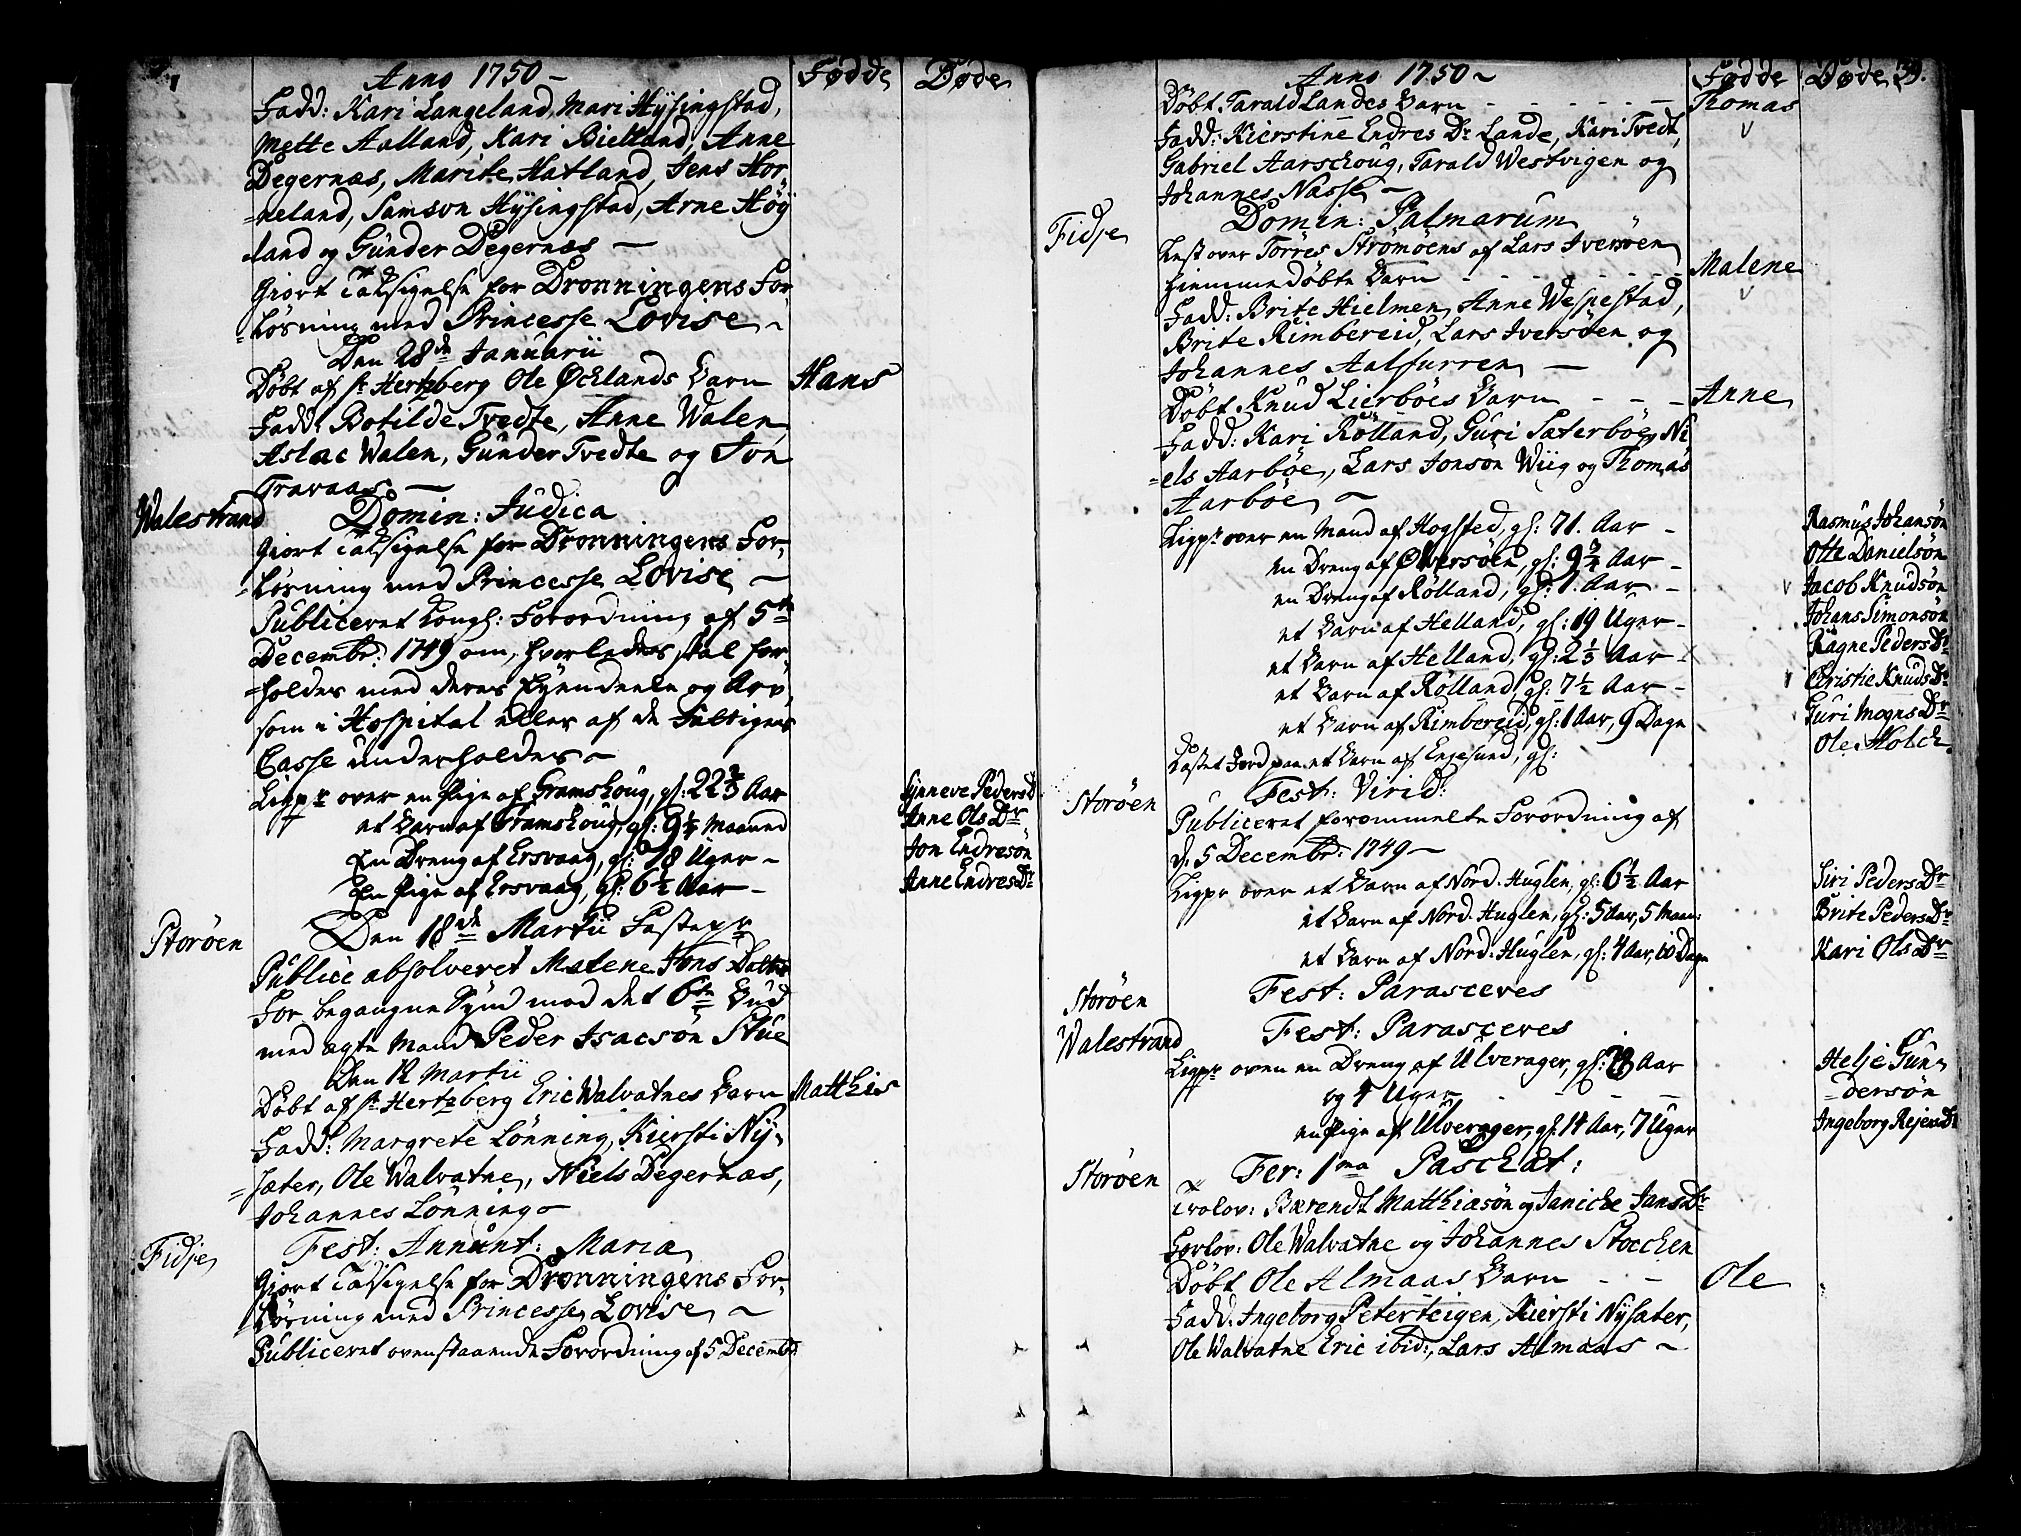 Anno 1750 -
Fødde
Døde
Fadd: Kari Langeland, Mari Hysingstad,
Mette Aalland, Kari Bielland, Anne
Degernæs, Marite Hatland, Jens Hor-
=neland, Samson Hysingstad, Arne Høy
land og Gunder Degernæs -
Giort Taksigelse for Dronningens For-
=løsning med Princesse Lovise -
Den 28de Januarii
Døbt af Hr Hertzberg Ole Øcklands Barn
Hans
Fadd: Botilde Tvedte, Anne Walen,
Aslac Walen, Gunder Tvedte og Jon
Travaas -
Walestrand
Domin: Judica
Giort Taksigelse for Dronningens For-
=løsning med Princesse Lovise -
Publiceret Kongl: Forordning af 5te
Decembr: 1749 om, hvorledes skal for-
=holdes med deres Eyendeele og Arv,
som i Hospital eller af de Fattiges
Casse underholdes -
Ligpr over en Pige af Gramshoug, gl: 22 2/3 Aar
Synneve Peders D
et Barn af Gramshoug, gl: 9 1/2 Maaned
Anne Ols Dr
En Dreng af Ersvaag, gl: 18 Uger -
Jon Endresøn
En Pige af Ersvaag, gl: 6 1/2 Aar -
Anne Endres Dr
Storøen
Den 18de Martii Festepr
Publice absolveret Malene Jons Datter
for begangne Synd mod det 6te Bud
med ægte Mand Peder Isacsøn Stue
Den 12 Martii
Døbt af Hr Hertzberg Eric Walvatnes Barn
Matthis
Fadd: Margrete Lønning, Kiersti Ny-
=sæter, Ole Walvatne, Niels Degernæs,
Johannes Lønning -
Fidje
Fest: Annunt: Maria
Giort Taksigelse for Dronningens For-
løsning med Princesse Lovise -
Publiceret ovenstaaende Forordning af 5 Decembr
Anno 1750 -
Fødde
Døde
39.
Døbt Tarald Landes Barn - - - - -
Thomas
Fadd: Kierstine Endres Dr Lande, Kari Tvedt,
Gabriel Aarschoug, Tarald Westvigen og
Johannes Nasse -
Fidje
Domin: Palmarum
Læst over Torres Strømøens af Lars Iversøen
hiemmedøbte Barn - - - - - -
Malene
Fadd: Brite Hielmen, Anne Wespestad,
Brite Rimbereid, Lars Iversøen og
Johannes Aalfurren -
Døbt Knud Lierbøes Barn - - -
Anne
Fadd: Kari Rølland, Guri Sæterbøe, Ni
=els Aarbøe, Lars Jonsøn Wiig og Thomas
Aarbøe -
Ligpr over en Mand af Hogsted, gl: 71. Aar -
Rasmus Johansøn
en Dreng af Øversøen, gl: 9 3/4 Aar -
Otte Danielsøn
en Dreng af Rølland, gl: 1. Aar -
Jacob Knudsøn
et Barn af Helland, gl: 19 Uger -
Johans Simonsøn
et Barn af Helland, gl: 2 1/3 Aar -
Ragne Peders Dr
et Barn af Rølland, gl: 7 1/2 Aar -
Christie Knuds Dr
et Barn af Rimbereid, gl: 1 Aar, 9 Dage
Guri Mogns Dr
Kastet Jord paa et Barn af Engesund, gl:
Ole Holck
Storøen
Fest: Virid:
Publiceret forommelte Forordning af
d. 5 Decembr: 1749 -
Ligpr over et Barn af Nord-Huglen, gl: 6 1/2 Aar
Siri Peders Dr
et Barn af Nord-Huglen, gl: 5 Aar, 5 Maan:
Brite Peders Dr
et Barn af Nord-Huglen, gl: 4 Aar, 10 Dage
Kari Ols Dr
Storøen
Fest: Parasceves
Walestrand
Fest: Parasceves
Ligpr over en Dreng af Ulverager, gl: Aar
Helje Gun
og 4 Uger - - -
=dersøn
en Pige af Ulverager, gl: 14 Aar, 7 Uger
Ingeborg Rejers Dr
Storøen
Fer: 1ma Paschat:
Trolov: Bærendt Matthiasøn og Janicke Jans Dr
Forlov: Ole Walvatne og Johannes Stocken
Døbt Ole Almaas Barn - -
Ole
Fadd: Ingeborg Peterteigen, Kiersti Nysæter,
Ole Walvatne Eric ibid:, Lars Almaas -